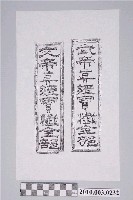 武帝昇經寶懺全部
文帝昇經寶懺全部
2010.003.0232